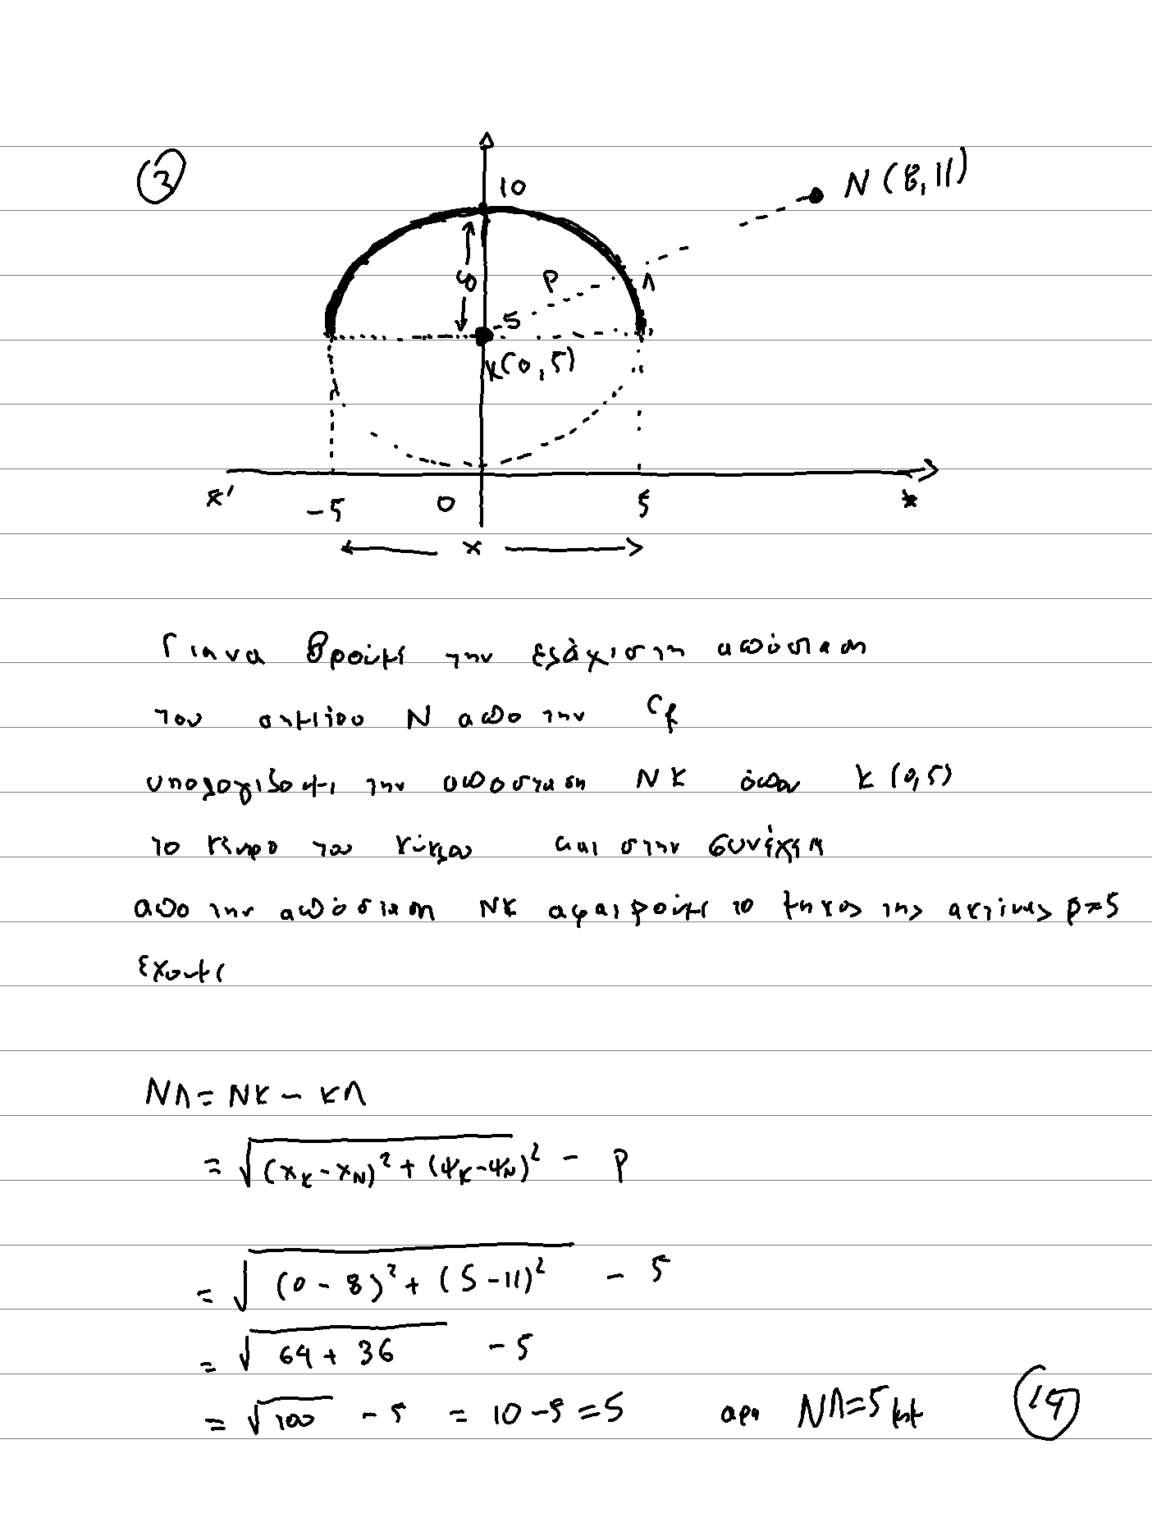 3
10
N (8,11)
5
ρ
Λ
5
κ(0,5)
x' -5 0 5 x
x
Για να βρούμε την ελάχιστη απόσταση
του σημείου N από την Cf
υπολογίζουμε την απόσταση NK όπου K (0,5)
το κέντρο του κύκλου και στην συνέχεια
από την απόσταση NK αφαιρούμε το μήκος της ακτίνας ρ=5
έχουμε
NΛ = NK - KΛ
= √(xK - xN)² + (ψK - ψN)² - ρ
= √(0 - 8)² + (5 - 11)² - 5
= √64 + 36 - 5
= √100 - 5 = 10 - 5 = 5 άρα NΛ = 5 km
14